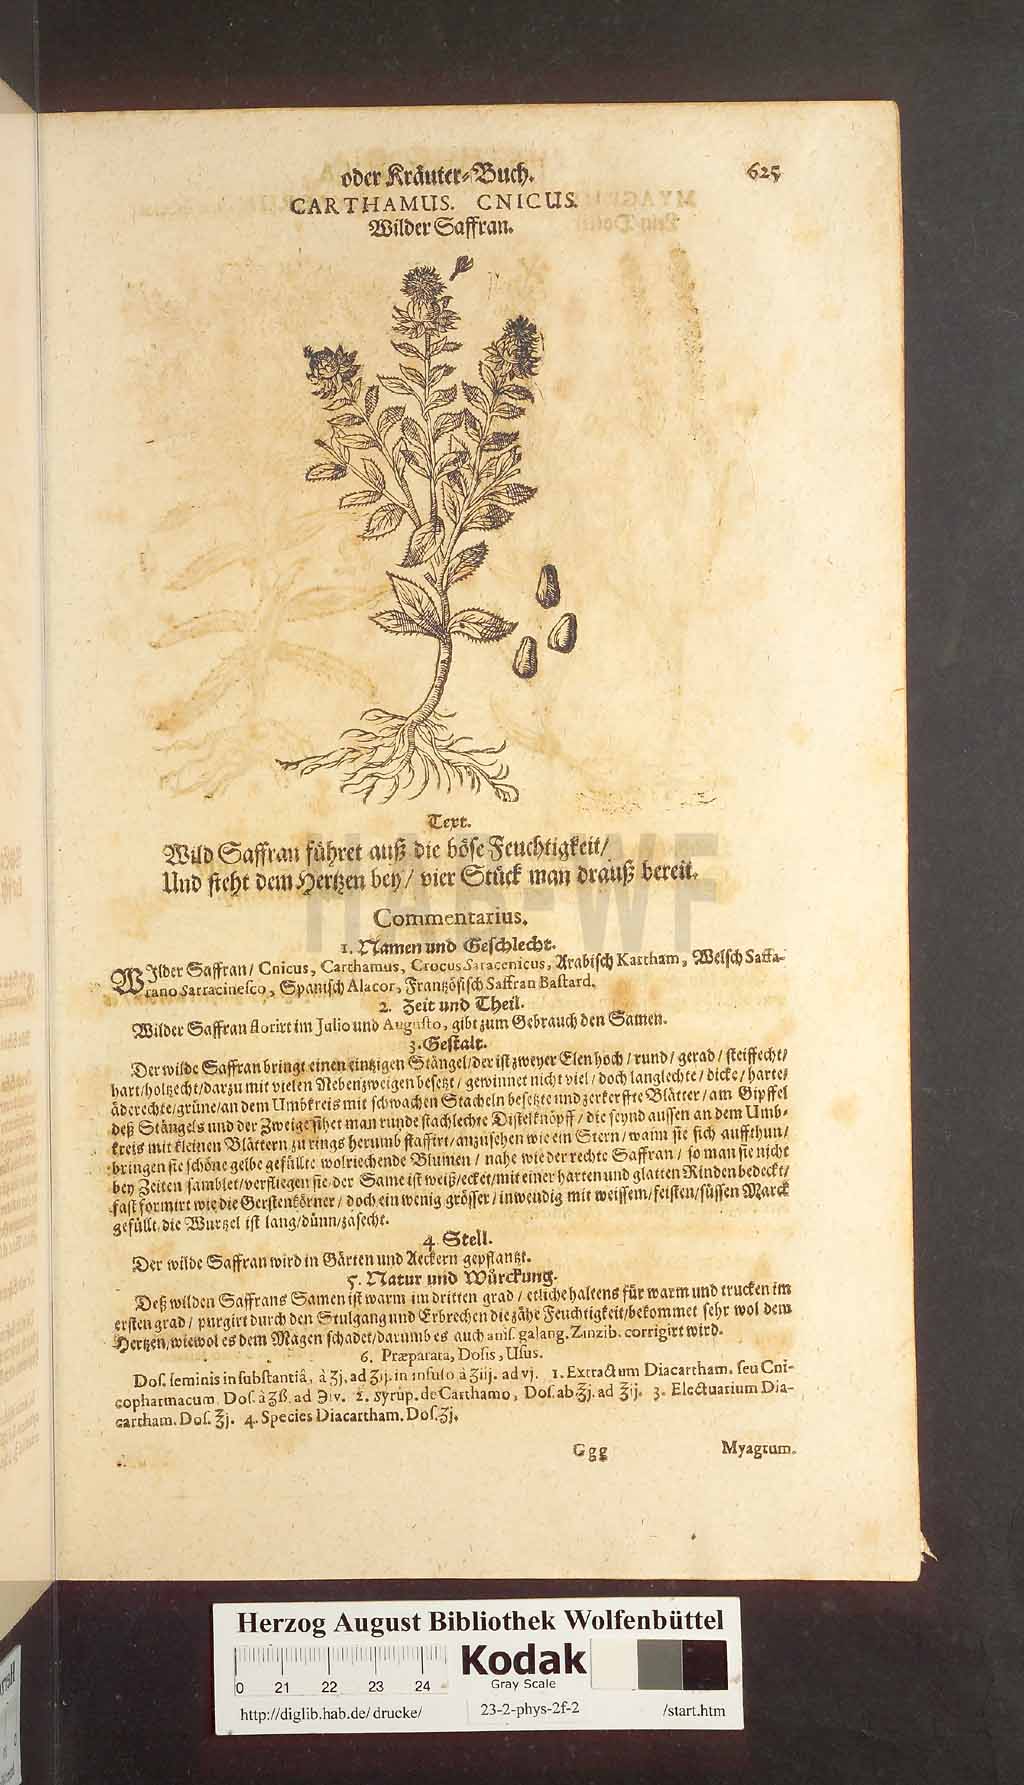 oder Kräuter-Buch. 625
CARTHAMUS. CNICUS.
Wilder Saffran.
Text.
Wild Saffran führet auß die böse Feuchtigkeit/
Und steht dem Hertzen bey/ vier Stück man drauß bereit.
Commentarius.
1. Namen und Geschlecht.
WIlder Saffran/ Cnicus, Carthamus, Crocus Saracenicus, Arabisch Kartham, Welsch Saffa-
rano Sarracinesco, Spanisch Alacor, Frantzösisch Saffran Bastard.
2. Zeit und Theil.
Wilder Saffran florirt im Julio und Augusto, gibt zum Gebrauch den Samen.
3. Gestalt.
Der wilde Saffran bringt einen eintzigen Stängel/der ist zweyer Elen hoch/ rund/ gerad/ steiffecht/
hart/holtzecht/darzu mit vielen Nebenzweigen besetzt/ gewinnet nicht viel/ doch langlechte/ dicke/ harte/
äderechte/grüne/an dem Umbkreis mit schwachen Stacheln besetzte und zerkerffte Blätter/ am Gipffel
deß Stängels und der Zweige sihet man runde stachlechte Distelknöpff/ die seynd aussen an dem Umb-
kreis mit kleinen Blättern zu rings herumb staffirt/anzusehen wie ein Stern/ wann sie sich auffthun/
bringen sie schöne gelbe gefüllte wolriechende Blumen/ nahe wie der rechte Saffran/ so man sie nicht
bey Zeiten samblet/verfliegen sie der Same ist weiß/ecket/mit einer harten und glatten Rinden bedeckt/
fast formirt wie die Gerstenkörner/ doch ein wenig grösser/ inwendig mit weissem/feisten/süssen Marck
gefüllt, die Wurtzel ist lang/dünn/zäsecht.
4. Stell.
Der wilde Saffran wird in Gärten und Aeckern gepflantzt.
5. Natur und Würckung.
Deß wilden Saffrans Samen ist warm im dritten grad/ etliche haltens für warm und trucken im
ersten grad/ purgirt durch den Stulgang und Erbrechen die zähe Feuchtigkeit/bekommet sehr wol dem
Hertzen/wiewol es dem Magen schadet/darumb es auch anis. galang. Zinzib. corrigirt wird.
6. Præparata, Dosis, Usus.
Dos. seminis in substantiâ, à ʒj. ad ʒij. in infuso à ʒiij. ad vj. 1. Extractum Diacartham. seu Cni-
copharmacum. Dos. à ʒß. ad ℈iv. 2. Syrup. de Carthamo, Dos. ab ℥j. ad ℥ij. 3. Electuarium Dia-
cartham. Dos. ℥j. 4. Species Diacartham. Dos. ʒj.
Ggg Myagrum.
HAB-WF
Herzog August Bibliothek Wolfenbüttel
0 21 22 23 24
Kodak
Gray Scale
http://diglib.hab.de/drucke/ 23-2-phys-2f-2 /start.htm